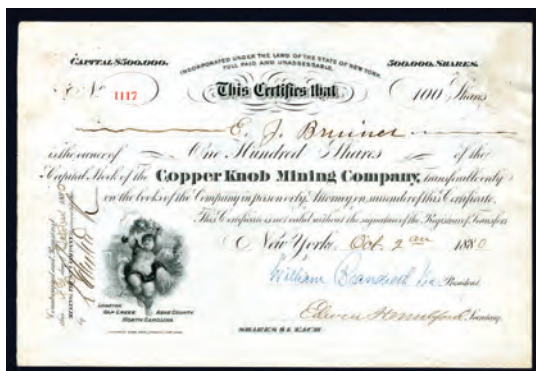 INCORPORATED UNDER THE LAWS OF THE STATE OF NEW YORK.
FULL PAID AND UNASSESSABLE.
CAPITAL $500,000. 500,000 SHARES.
No 1117 This Certifies that 100 Shares
E. J. Bruner
is the owner of One Hundred Shares of the
Capital Stock of the Copper Knob Mining Company, transferable only
on the books of the Company in person or by Attorney on surrender of this Certificate.
This Certificate is not valid without the signature of the Registrar of Transfers
New York, Oct. 2 1880
William President
Countersigned and Registered
Edwin Secretary
LOCATION
GAP CREEK ASHE COUNTY
NORTH CAROLINA
SHARES $1 EACH